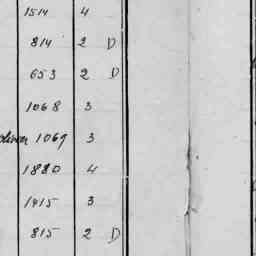 1514 4
814 2 D
653 2 D
1068 3
1069 3
1880 4
1415 3
815 2 D